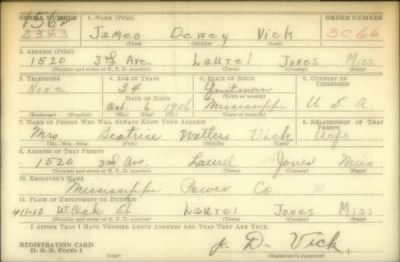 SERIAL NUMBER 1. NAME (Print) ORDER NUMBER
1568
2383 James Dewey Vick 3066
(First) (Middle) (Last)
2. ADDRESS (Print)
1520 3rd Ave Laurel Jones Miss
(Number and street or R. F. D. number) (Town) (County) (State)
3. TELEPHONE 4. AGE IN YEARS 5. PLACE OF BIRTH 6. COUNTRY OF CITIZENSHIP
None 34 Quitman
DATE OF BIRTH (Town or county)
Oct 6 1906 Mississippi U S A
(Exchange) (Number) (Mo.) (Day) (Yr.) (State or country)
7. NAME OF PERSON WHO WILL ALWAYS KNOW YOUR ADDRESS 8. RELATIONSHIP OF THAT PERSON
Mrs Beatrice Walters Vick Wife
(Mr., Mrs., Miss) (First) (Middle) (Last)
9. ADDRESS OF THAT PERSON
1520 3rd Ave. Laurel Jones Miss
(Number and street or R. F. D. number) (Town) (County) (State)
10. EMPLOYER'S NAME
Mississippi Power Co
11. PLACE OF EMPLOYMENT OR BUSINESS
411-13 W Oak St Laurel Jones Miss
(Number and street or R. F. D. number) (Town) (County) (State)
I AFFIRM THAT I HAVE VERIFIED ABOVE ANSWERS AND THAT THEY ARE TRUE.
REGISTRATION CARD
D. S. S. Form 1 J. D. Vick
(Registrant's signature)